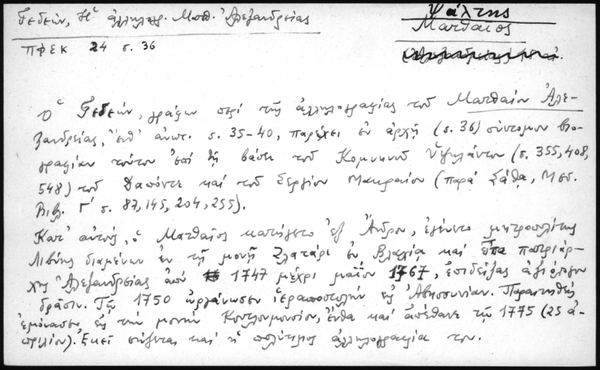 Γεδεών, Ἡ ἀλληλογρ. Ματθ. Ἀλεξανδρείας
Ψάλτης
Ματθαῖος
ΠΦΕΚ 24 σ. 36
Ὁ Γεδεών, γράφων περὶ τῆς ἀλληλογραφίας τοῦ Ματθαίου Ἀλε-
ξανδρείας, ἔνθ' ἀνωτ. σ. 35-40, παρέχει ἐν ἀρχῇ (σ. 36) σύντομον βιο-
γραφίαν τούτου ἐπὶ τῇ βάσει τοῦ Κομνηνοῦ Ὑψηλάντου (σ. 355, 408,
548) τοῦ Δαπόντε καὶ τοῦ Σεργίου Μακραίου (παρὰ Σάθᾳ, Μεσ.
Βιβλ. Γ' σ. 87, 145, 204, 255).
Κατ' αὐτούς, ὁ Ματθαῖος κατήγετο ἐξ Ἄνδρου, ἐγένετο μητροπολίτης
Λιβύης διαμένων ἐν τῇ μονῇ Ζλατάρι ἐν Βλαχίᾳ καὶ εἶτα πατριάρ-
χης Ἀλεξανδρείας ἀπὸ 1747 μέχρι μαΐου 1767, ἐπιδείξας ἀξιόλογον
δρᾶσιν. Τῷ 1750 ὠργάνωσεν ἱεραποστολὴν εἰς Ἀβησσυνίαν. Παραιτηθεὶς
ἐμόνασεν εἰς τὴν μονὴν Κουτλουμουσίου, ἔνθα καὶ ἀπέθανε τῷ 1775 (25 ἀ-
πριλίου). Ἐκεῖ σώζεται καὶ ἡ πολύτιμος ἀλληλογραφία του.